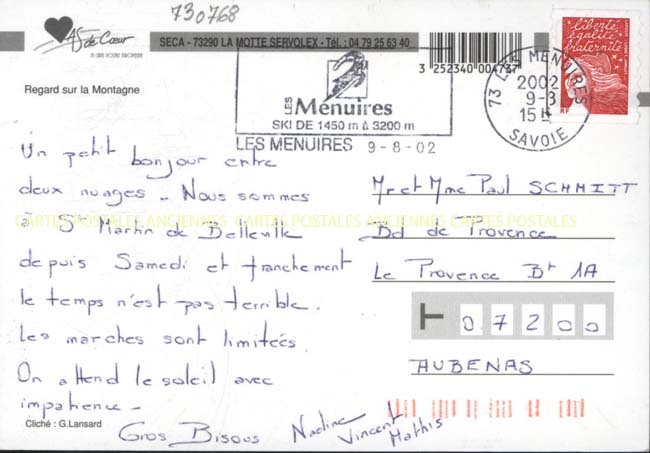 730768
As de Cœur
LA CARTE POSTALE EUROPEENNE
SECA - 73290 LA MOTTE SERVOLEX - Tél. : 04 79 25 63 40
3 252340 004737
Regard sur la Montagne
LES Menuires
SKI DE 1450 m à 3200 m
LES MENUIRES 9-8-02
73 LES MENUIRES
2002
9-8
15H
SAVOIE
liberté
égalité
fraternité
RF
Un petit bonjour entre
deux nuages.. Nous sommes
à St Martin de Belleville
depuis Samedi et franchement
le temps n'est pas terrible.
Les marches sont limitées.
On attend le soleil avec
impatience..
Gros Bisous Nadine
Vincent
Mathis
Mr et Mme Paul SCHMITT
Bd de Provence
Le Provence Bt 1A
07200
AUBENAS
CARTES POSTALES ANCIENNES CARTES POSTALES ANCIENNES CARTES POSTALES
Cliché : G.Lansard